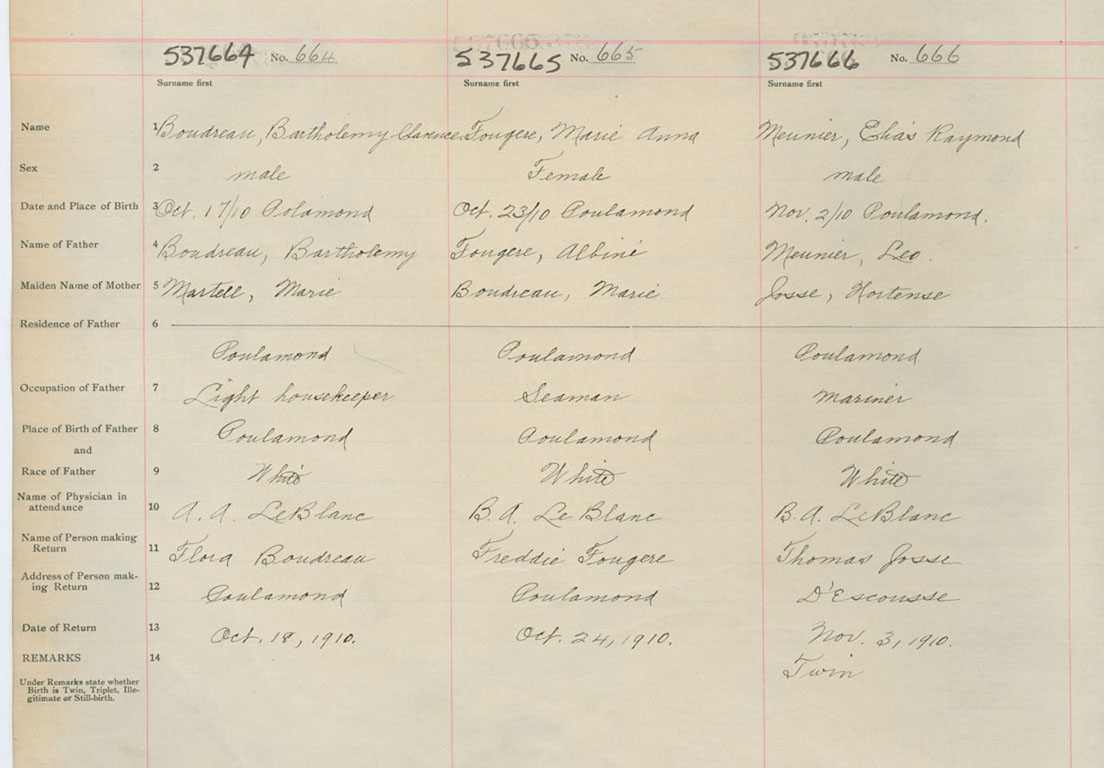 537664 No. 664 537665 No. 665 537666 No. 666
Surname first Surname first Surname first
Name 1 Boudreau, Bartholemy Clarence Fougere, Marie Anna Meunier, Elias Raymond
Sex 2 male Female male
Date and Place of Birth 3 Oct. 17/10 Polamond Oct. 23/10 Poulamond Nov. 2/10 Poulamond.
Name of Father 4 Boudreau, Bartholemy Fougere, Albine Meunier, Leo.
Maiden Name of Mother 5 Martell, Marie Boudreau, Marie Josse, Hortense
Residence of Father 6
Poulamond Poulamond Poulamond
Occupation of Father 7 Light housekeeper Seaman mariner
Place of Birth of Father 8 Poulamond Poulamond Poulamond
and
Race of Father 9 White White White
Name of Physician in
attendance 10 A. A. LeBlanc B. A. Le Blanc B. A. LeBlanc
Name of Person making
Return 11 Flora Boudreau Freddie Fougere Thomas Josse
Address of Person mak-
ing Return 12 Poulamond Poulamond D'Escousse
Date of Return 13 Oct. 18, 1910. Oct. 24, 1910. Nov. 3, 1910.
REMARKS 14 Twin
Under Remarks state whether
Birth is Twin, Triplet, Ille-
gitimate or Still-birth.